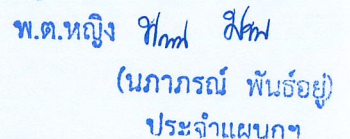 พ.ต.หญิง
(นภาภรณ์ พันธ์อยู่)
ประจำแผนกฯ